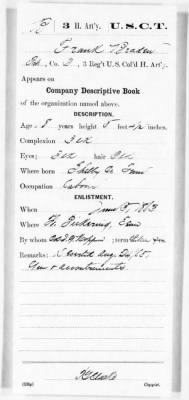 B | 3 H. Art'y. | U.S.C.T.
Frank Braden
Pvt., Co. D, 3 Reg't U.S. Col'd H. Art'y.
Appears on
Company Descriptive Book
of the organization named above.
DESCRIPTION.
Age years; height 5 feet inches.
Complexion Blk
Eyes Blk ; hair Blk
Where born Shelby Co Tenn
Occupation Labor
ENLISTMENT.
When June 5, 1863.
Where Ft. Pickering, Tenn
By whom ; term 3 y'rs.
Remarks: Aug. 65.
Gun & accoutrements
Copyist.